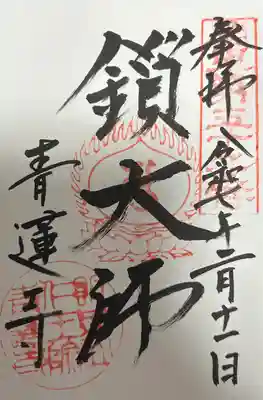 奉拝 令和七年二月十一日
鎖大師
青蓮寺